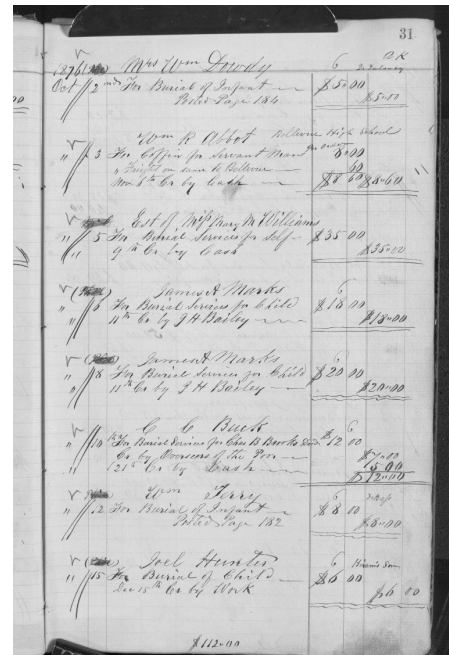 31
1876 Mrs Wm Dowdy 6
Oct 2nd For Burial of Infant $5.00
Posted Page 184 $5.00
Wm R Abbot Bellevue High School
" 3 For Coffin for Servant Man 8.00
" Freight on same to Bellevue 60
Nov 8th Cr by Cash $8 60 $8.60
Est of Mrs Mary M Williams
" 5 For Burial Services for Self $35 00
" 9th Cr by Cash $35.00
James A Marks 6
" 6 For Burial Services for Child $18 00
" 11th Cr by J H Bailey $18.00
James A Marks 6
" 8 For Burial Services for Child $20 00
" 11th Cr by J H Bailey $20.00
C C Buck 6
" 10th For Burial Services for Chas B Brooks $12 00
Cr by Overseers of the Poor
" 21st Cr by Cash 5 00
$12.00
Wm Terry 6
" 12 For Burial of Infant $8 00
Posted Page 182 $8.00
Joel Hunter 6
" 15 For Burial of Child $6 00
Dec 15th Cr by Work $6 00
$112.00